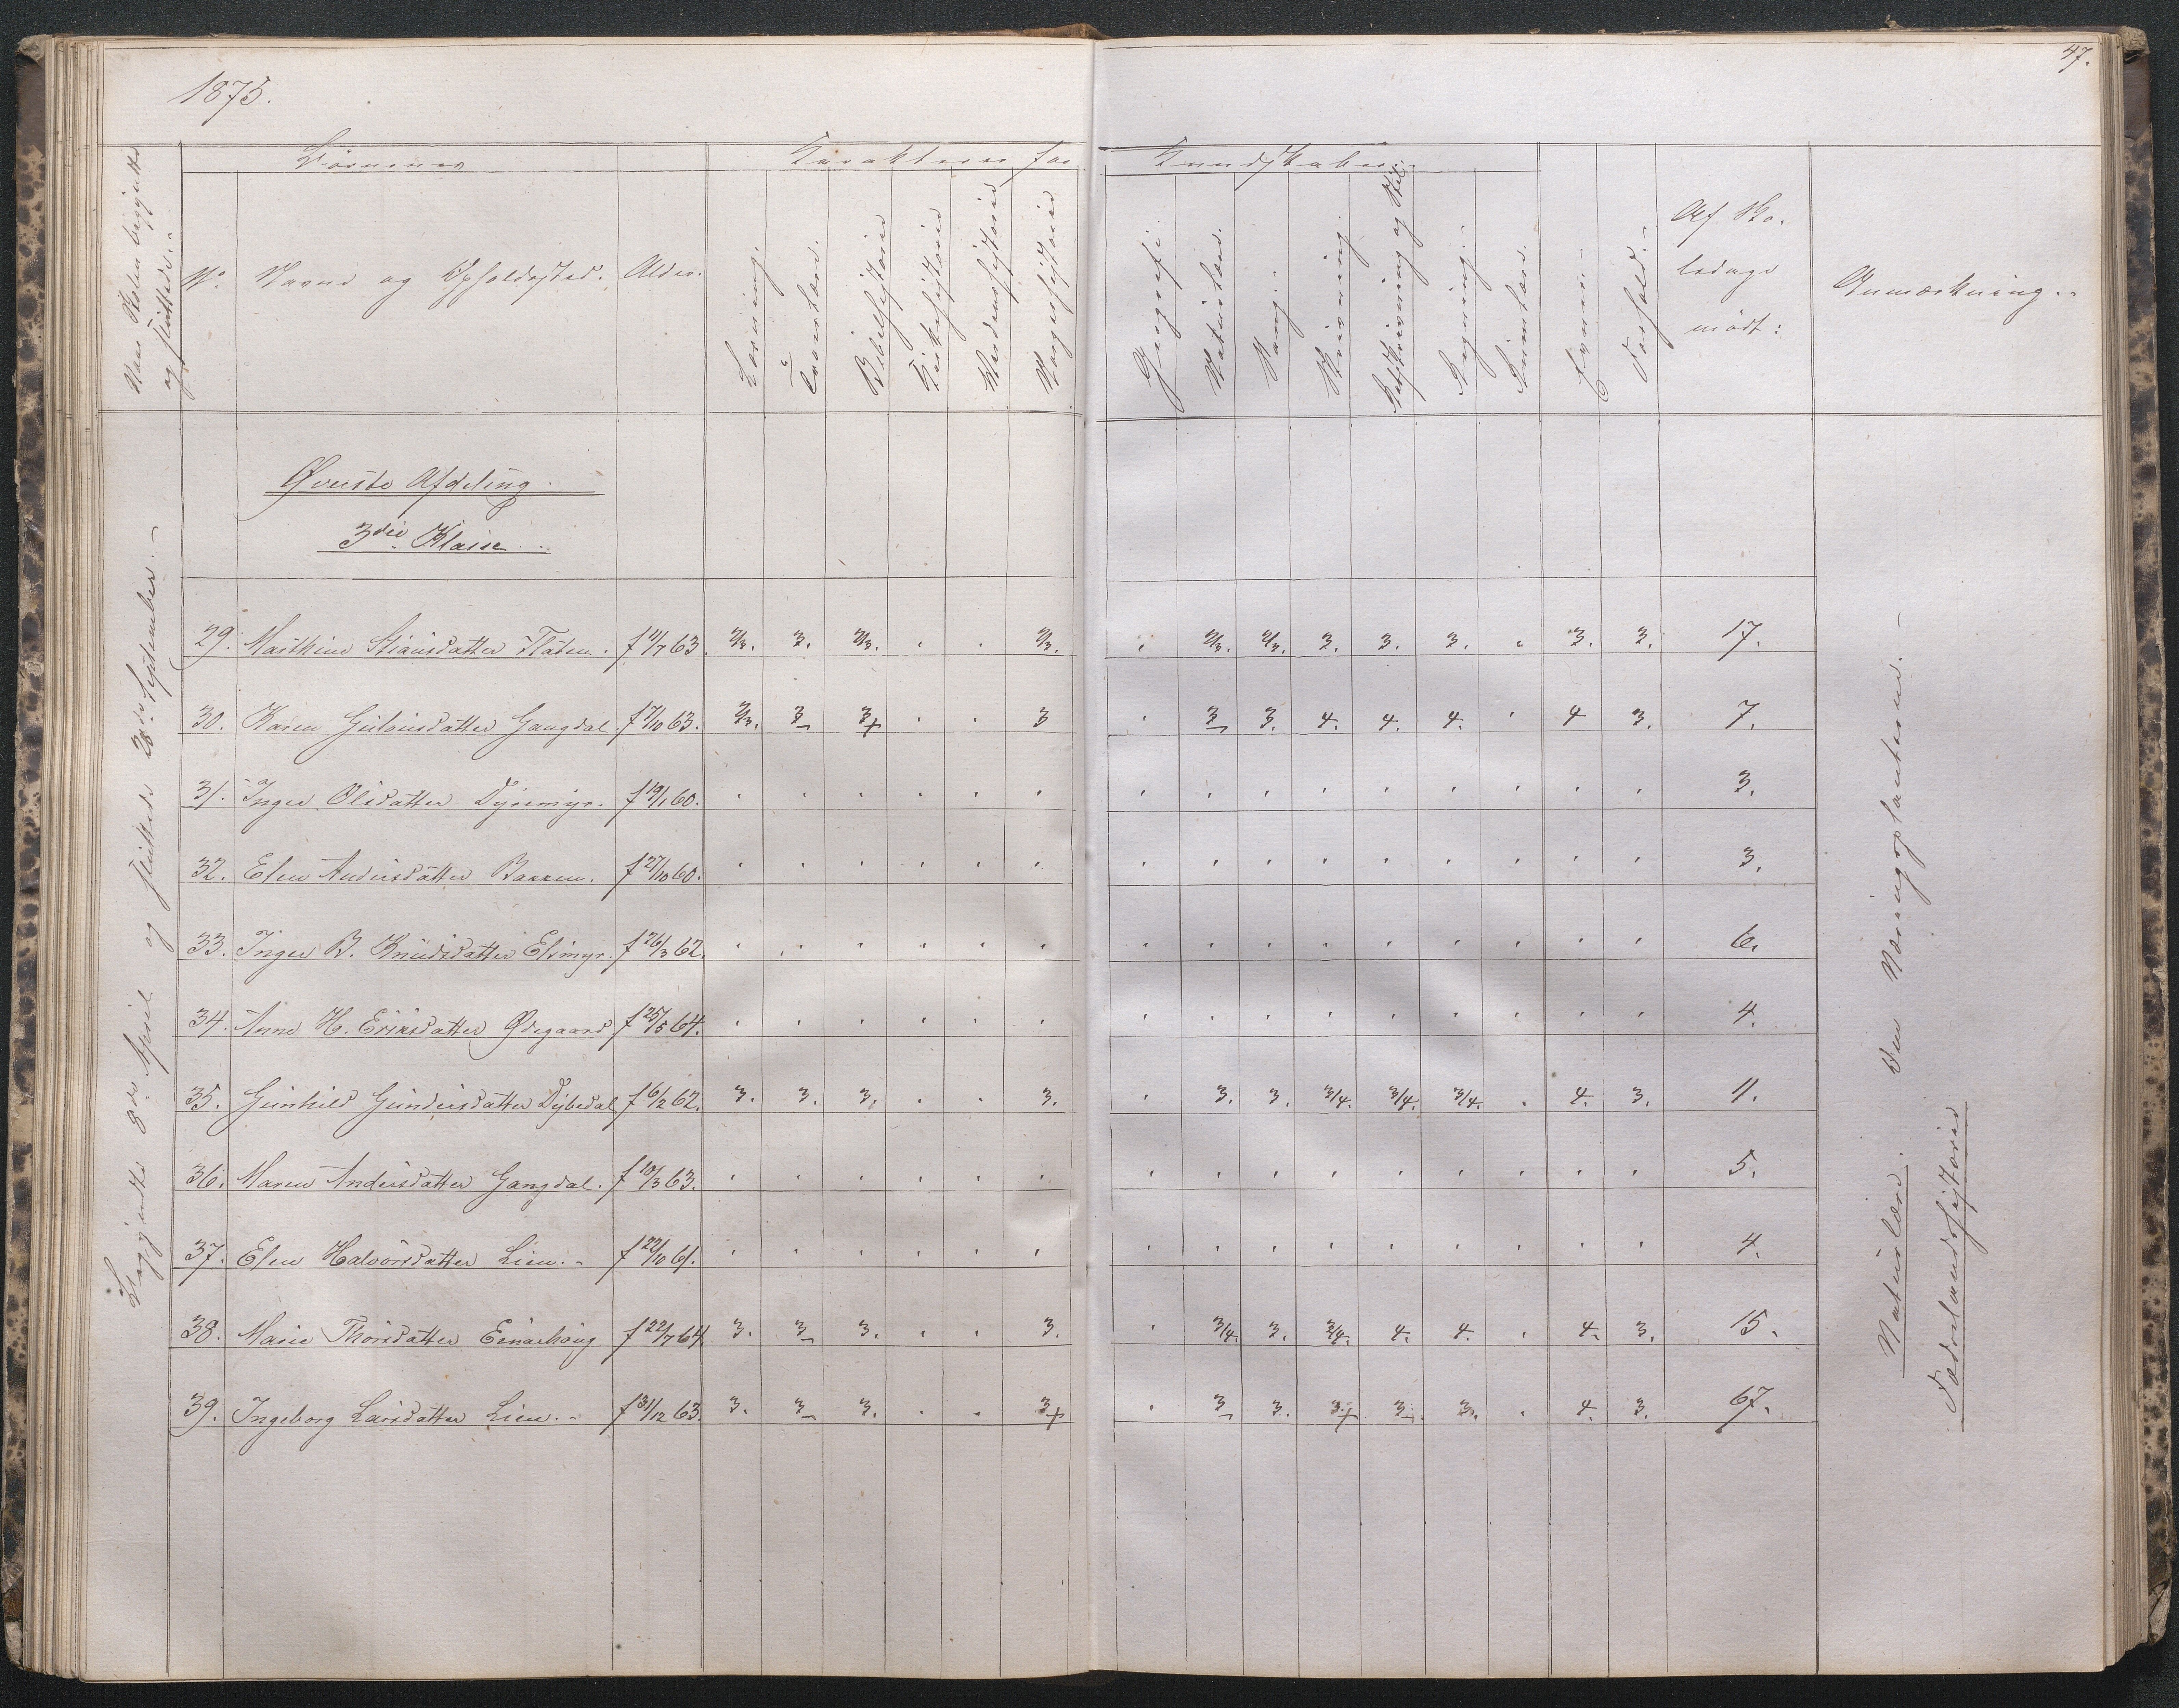 1875.
47.
Naar Skolen begyndte og sluttede.-
Børnenes
Karakterer for
Kundskaber:
No.
Navne og Opholdssted.
Alder.
Læsning.
Troeslære.
Bibelhistorie
Kirkehistorie
Verdenshistorie
Norgeshistorie
Geografi.
Naturlære.
Sang.
Skrivning.
Retskrivning og Stil.
Regning.-
Evner.-
Forhold.-
Af Sko-
ledage
mödt:
Anmærkning.-
Begyndte 8de April og sluttede 28de September.-
Øverste Afdeling.
3die Klasse.
29. Mathine Stiansdatter Flaten. f 11/7 63. 2/3. 3. 2/3. . . 2/3. . 2/3. 2/3. 3. 3. 3. . 3. 3. 17.
30. Karen Gulovsdatter Gangdal f 7/10 63. 2/3. 3- 3+ . . 3 . 3- 3. 4. 4. 4. . 4 3. 7.
31. Inger Olsdatter Dyremyr. f 19/1 60. . . . . . . . . . . . . . . . 3.
32. Elen Andersdatter Bakken. f 27/10 60. . . . . . . . . . . . . . . . 3.
33. Inger B. Knudsdatter Elsmyr. f 26/3 62. . . . . . . . . . . . . . . . 6.
34. Anne H. Eriksdatter Ødegaard f 25/5 64. . . . . . . . . . . . . . . . 4.
35. Gunhild Gundersdatter Dybedal f 6/2 62. 3. 3. 3. . . 3. . 3. 3. 3/4. 3/4. 3/4. . 4. 3. 11.
36. Maren Andersdatter Gangdal. f 10/3 63. . . . . . . . . . . . . . . . 5.
37. Elen Halvorsdatter Lien.- f 22/10 61. . . . . . . . . . . . . . . . 4.
38. Marie Thorsdatter f 22/7 64. 3. 3- 3. . . 3. . 3/4. 3. 3/4. 4. 4. . 4. 3. 15.
39. Ingeborg Larsdatter Lien.- f 31/12 63. 3. 3- 3. . . 3+ . 3- 3. 3+ 3- 3. . 4. 3. 67.
Naturlære. Om Næringsplanterne.-
Fædrelandshistorie